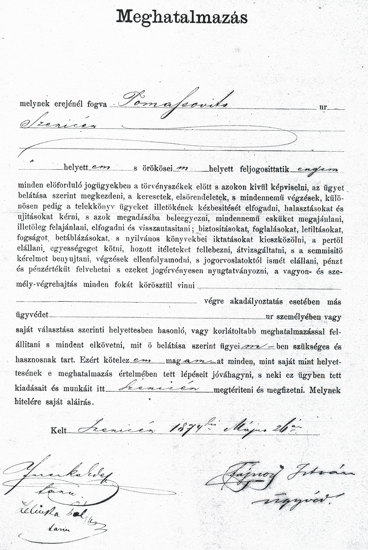 Meghatalmazás
melynek erejénél fogva Tomassovits ur
Szenicén
ő helyett em s örökösei m helyett feljogosittatik engem
minden előforduló jogügyekben a törvényszékek előtt s azokon kivül képviselni, az ügyet
belátása szerint megkezdeni, a keresetek, elsőrendeletek, s mindennemű végzések, külö-
nösen pedig a telekkönyv ügyeket illetőkének kézbesitését elfogadni, halasztásokat és
ujitásokat kérni, s azok megadásába beleegyezni, mindennemű esküket megajánlani,
illetőleg felajánlani, elfogadni és visszautasitani; biztositásokat, foglalásokat, letiltásokat,
fogságot, betáblázásokat, s nyilvános könyvekbei iktatásokat kieszközölni, a pertől
elállani, egyességeget kötni, hozott itéleteket fellebezni, átvizsgáltatni, s a semmisitő
kérelmet benyujtani, végzések ellenfolyamodni, s jogorvoslatoktól ismét elállani, pénzt
és pénzértékűt felvehetni s ezeket jogérvényesen nyugtatványozni, a vagyon- és sze-
mély-végrehajtás minden fokát körösztül vinni
végre akadályoztatás esetében más
ügyvédet ur személyében vagy
saját választása szerinti helyettesben hasonló, vagy korlátoltabb meghatalmazással fel-
állitani s mindent elkövetni, mit ő belátása szerint ügyei m-ben szükséges és
hasznosnak tart. Ezért kötelez em mag am-at minden, mint saját mint helyet-
tesének e meghatalmazás értelmében tett lépéseit jóváhagyni, s neki ez ügyben tett
kiadásait és munkáit itt Szenicén megtériteni és megfizetni. Melynek
hitelére saját aláirás.
Kelt Szenicén 1874 Május 26
tanu
Fajnor István
tanu
ügyvéd